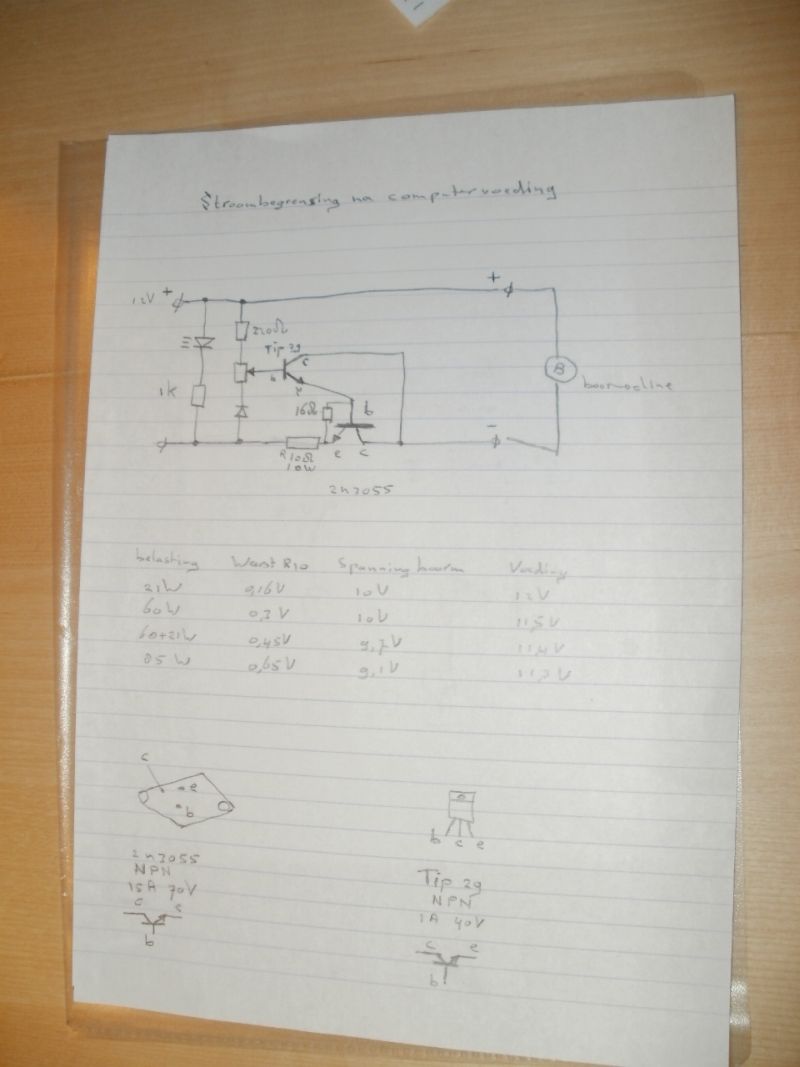 Stroombegrensing na computervoeding
12V + + 
220Ω
Tip 29
c
1K b e
16Ω b
B boormachine
-
R 10Ω e c
10W
2n3055
belasting Waarst R10 Spanning boorm Voeding
21W 0,16V 10V 12V
60W 0,3V 10V 11,5V
60+21W 0,45V 9,7V 11,4V
85W 0,65V 9,1V 11,3V
c
e
b
b c e
2n3055
NPN
15A 70V
c e
b
Tip 29
NPN
1A 40V
c e
b